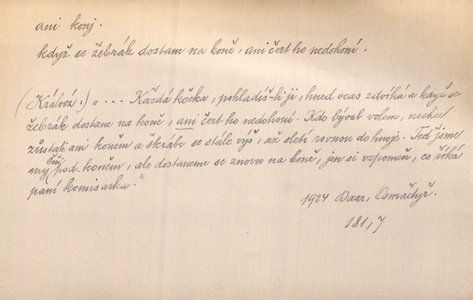 ani konj.
když se žebrák dostane na koně, ani čert ho nedohoní.
(Králová:) „ .... Každá kočka, pohladíš-li ji, hned ocas zdvihá a když se
žebrák dostane na koně, ani čert ho nedohoní. Kdo býval volem, nechce
zůstati ani koněm a škrábe se stále výš, až sletí rovnou do hnoje. Teď jsme
my pod koněm, ale dostaneme se znovu na koně, jen si vzpomeň, co říká
paní komisarka."
1924 Baar, Osmačtyř.
181,7